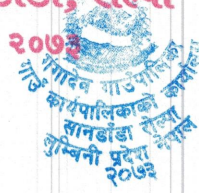 २०७३
गंगादेव गाउँपालिका
गाउँ कार्यपालिकाको कार्यालय
सानडाँडा रोल्पा
लुम्बिनी प्रदेश
नेपाल
२०७३